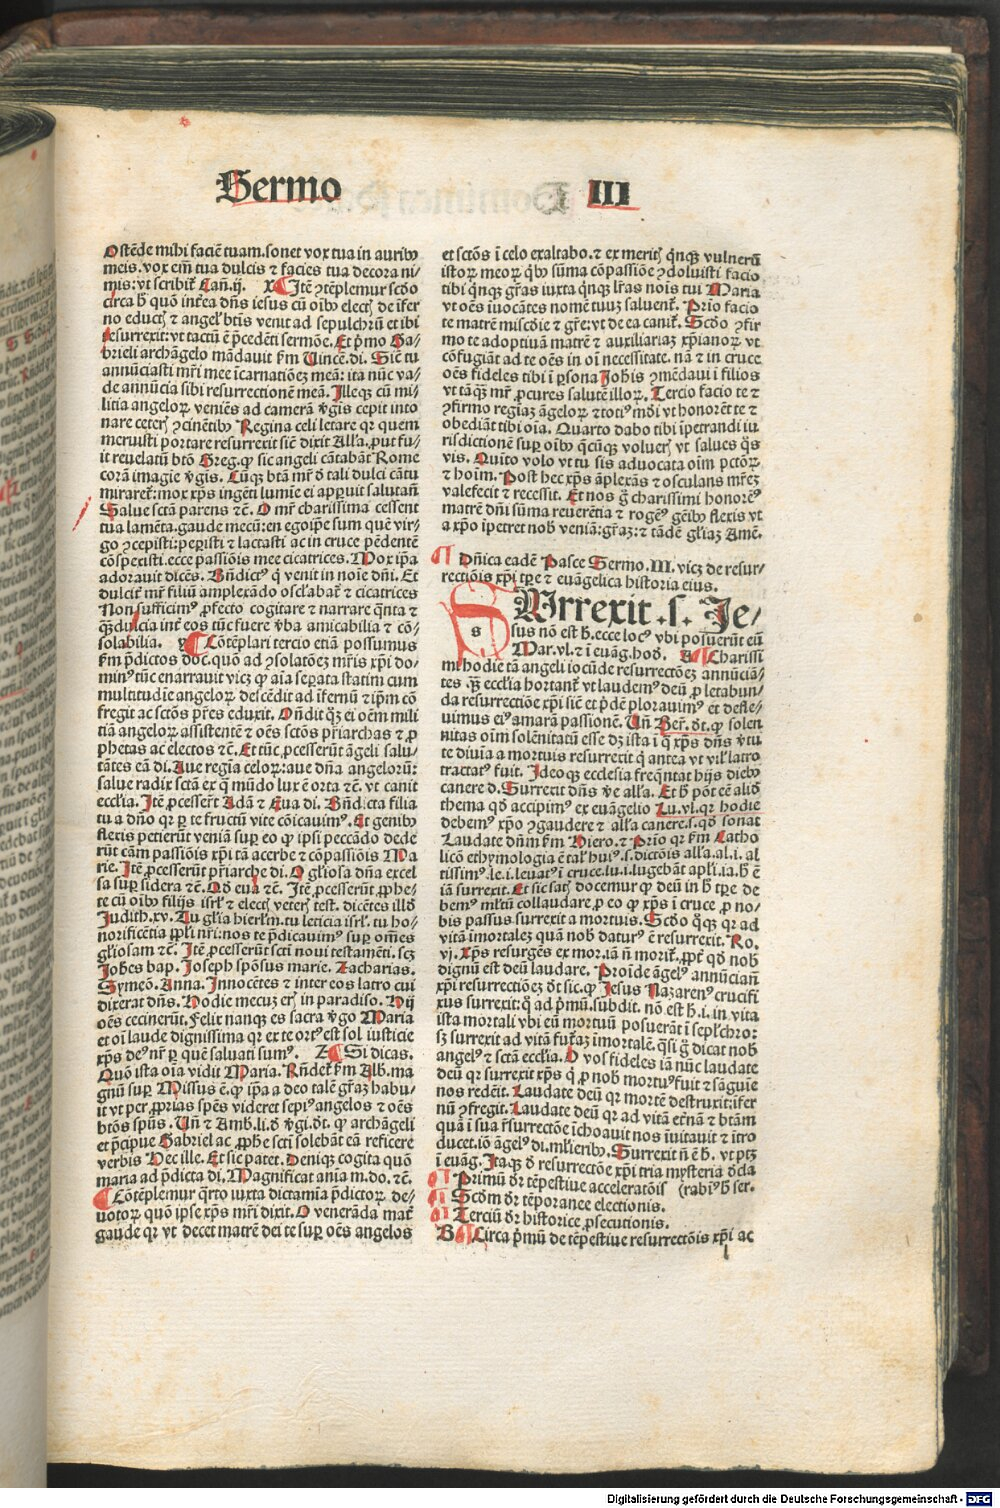 Sermo III
Ostēde mihi faciē tuam. sonet vox tua in auribꝰ
meis. vox em̄ tua dulcis ⁊ facies tua decora ni-
mis: vt scribit᷑ Cañ. ij. x Itē ꝯtēplemur scd̄o
circa h̄ quō int̓ea dn̄s iesus cū oībꝰ elect̓ de īfer
no educt̓ ⁊ angel̓ btīs venit ad sepulchrū et ibi
resurrexit: vt tactū ē p̄cedēti sermōe. Et p̄mo Ga-
brieli archāgelo mādauit fm̄ Uincē. di. Sic̄ tu
annūciasti mr̄i mee īcarnatiōeꝫ meā: ita nūc va-
de annūcia sibi resurrectionē meā. Illeqꝫ cū mi-
litia angeloꝝ veniēs ad camerā v̓gīs cepit into
nare ceter̓ ꝯcinētibꝰ Regina celi letare qꝛ quem
meruisti portare resurrexit sic̄ dixit All̓a. ꝓut fu-
it reuelatū btō Greg. ꝙ sic angeli cātabāt Rome
corā imagīe v̓gīs. Cūqꝫ btā mr̄ d̓ tali dulci cātu
miraret᷑: mox xp̄s ingēti lumīe ei apꝑuit salutañ
Salue sctā parens ⁊c̄. O mr̄ charissima cessent
tua lamēta. gaude mecū: en ego ip̄e sum quē vir-
go ꝯcepisti: peꝑisti ⁊ lactasti ac in cruce pēdentē
cōspexisti. ecce passiōis mee cicatrices. Mox ip̄a
adorauit dicēs. Bn̄dict̓ꝰ q̇ venit in noīe dn̄i. Et
dulcit̓ mr̄ filiū amplexādo oscl̓abat᷑ ⁊ cicatrices
Non sufficimꝰ ꝓfecto cogitare ⁊ narrare q̄nta ⁊
q̄ꝫ dulcia int̓ eos tūc fuere v̓ba amicabilia ⁊ cō-
solabilia. y Cōtēplari tercio etiā possumus
fm̄ p̄dictos doc̄. quō ad ꝯsolatōeꝫ mr̄is xp̄i do-
minꝰ tūc enarrauit vicꝫ ꝙ aīa sepata statim cum
multitudīe angeloꝝ descēdit ad īfernū ⁊ ip̄m cō
fregit ac sctōs pr̄es eduxit. Oñdit q̇ꝫ ei oēm mili
tiā angeloꝝ assistentē ⁊ oēs sctōs pr̄iarchas ⁊ ꝓ
phetas ac electos ⁊c̄. Et tūc ꝓcesserūt āgeli salu-
tātes eā di. Aue regīa celoꝝ: aue dn̄a angeloꝝ:
salue radix sctā ex q̇ mūdo lux ē orta ⁊c̄. vt canit
eccl̓ia. Itē ꝓcesser̄t Adā ⁊ Eua di. Bn̄dicta filia
tu a dn̄o qꝛ ꝑ te fructū vite cōicauimꝰ. Et genibꝰ
flexis petierūt veniā super eo ꝙ ipsi peccādo dede
rūt cām passiōis xp̄i tā acerbe ⁊ cōpassiōis Ma
rie. Itē ꝓcesserūt pr̄iarche di. O gl̓iosa dn̄a excel
sa suꝑ sidera ⁊c̄. Qd̓ eua ⁊c̄. Itē ꝓcesserūt ꝓphe-
te cū oībꝰ filijs isrl̓ ⁊ elect̓ veter̓ test. dicētes illd̓
Judith. xv. Tu gl̓ia hierl̓m. tu leticia isrl̓. tu ho-
norificētia ꝓpl̓i nr̄i: nos te p̄dicauimꝰ suꝑ om̄es
gl̓iosam ⁊c̄. Itē ꝓcesserūt sctī noui testamēti. scꝫ
Joh̄es bap. Joseph spōsus marie. Zacharias.
Symeō. Anna. Innocētes ⁊ inter eos latro cui
dixerat dn̄s. Hodie mecuꝫ er̓ in paradiso. Hij
oēs cecinerūt. Felix nanqꝫ es sacra v̓go Maria
et oī laude dignissima qꝛ ex te ortꝰ est sol iusticie
xp̄s deꝰ nr̄ ꝑ quē saluati sumꝰ. Z Si dicas.
Quō ista oīa vidit Maria. Rn̄det᷑ fm̄ Alb. ma
gnū suꝑ Missus ē. ꝙ ip̄a a deo talē gr̄aꝫ habu-
it vt per ꝓprias spēs videret sepiꝰ angelos ⁊ oēs
btōs spūs. Uñ ⁊ Amb. li. d̓ v̓gi. d̄t. ꝙ archāgeli
et p̄cipue Gabriel ac ꝓphe sctī solebāt eā reficere
verbis Hec ille. Et sic patet. Deniqꝫ cogita quō
maria ad p̄dicta di. Magnificat anīa m. do. ⁊c̄.
Cōtēplemur q̄rto iuxta dictamīa p̄dictoꝝ de-
uotoꝝ quō ipse xp̄s mr̄i dixit. O venerāda mat̓
gaude qꝛ vt decet matrē dei te suꝑ oēs angelos
et sctōs ī celo exaltabo. ⁊ ex merit̓ q̇nqꝫ vulnerū
istoꝝ meoꝝ q̇bꝰ sūma cōpassiōe ꝯdoluisti facio
tibi q̇nqꝫ gr̄as iuxta q̇nqꝫ lr̄as nōis tui Maria
vt oēs īuocātes nomē tuuꝫ saluent᷑. Prīo facio
te matrē miscd̓ie ⁊ gr̄e: vt de ea canit᷑. Scd̄o ꝯfir
mo te adoptiuā matrē ⁊ auxiliariaꝫ xp̄ianoꝝ vt
cōfugiāt ad te oēs in oī necessitate. nā ⁊ in cruce
oēs fideles tibi ī ꝑsona Joh̄is ꝯmēdaui ī filios
vt tāqꝫ mr̄ ꝓcures salutē illoꝝ. Tercio facio te ⁊
ꝯfirmo regīaꝫ āgeloꝝ ⁊ totiꝰ mūdi vt honorēt te ⁊
obediāt tibi oīa. Quarto dabo tibi īpetrandi iu
risdictionē suꝑ oībꝰ q̇cūqꝫ volueris vt salues q̇s
vis. Quīto volo vt tu sis aduocata oīm pctōꝝ
⁊ hoīm. Post hec xp̄s āplexās ⁊ osculans mr̄eꝫ
valefecit ⁊ recessit. Et nos ḡ charissimi honorēꝰ
matrē dn̄i sūma reuerētia ⁊ rogēꝰ geībꝰ flexis vt
a xp̄o īpetret nob̓ veniā: gr̄aꝫ: ⁊ tādē gl̓iaꝫ Amē.
Dn̄ica eadē Pasce Sermo. III. vicꝫ de resur-
rectiōis xp̄i tꝑe ⁊ euāgelica historia eius.
SUrrexit .s. Je-
sus nō est h̄. ecce locꝰ vbi posuerūt eū
Mar. vl. ⁊ ī euāg. hod̓. A Charissi
mi hodie tā angeli iocūde resurrectōeꝫ annūciā-
tes qꝫ eccl̓ia hortant᷑ vt laudemꝰ deū ꝓ letabun-
da resurrectiōe xp̄i sic̄ et p̄dē plorauimꝰ et defle-
uimus eiꝰ amarā passionē. Uñ Ber̄. d̄t. ꝙ solen
nitas oīm solēnitatū esse dꝫ ista ī q̇ xp̄s dn̄s v̓tu
te diuīa a mortuis resurrexit q̇ antea vt vil̓ latro
tractatꝰ fuit. Ideoqꝫ ecclesia freq̄ntat hijs diebꝰ
canere d. Surrexit dn̄s v̓e all̓a. Et h̄ pōt eē aliđ
thema qđ accipimꝰ ex euāgelio Lu. vl. qꝛ hodie
debemꝰ xp̄o ꝯgaudere ⁊ all̓a canere. s. qđ sonat
Laudate dn̄m fm̄ Hiero. ⁊ Prīo qꝛ fm̄ Catho
licō ethymologia ē tal̓ huiꝰ. s. dictōis all̓a. al. i. al
tissimꝰ. le. i. leuatꝰ ī cruce. lu. i. lugebāt apl̓i. ia. h̄ ē
iā surrexit. Et sic satꝭ docemur ꝙ deū in h̄ tꝑe de
bemꝰ ml̓tū collaudare. ꝑ eo ꝙ xp̄s ī cruce ꝓ no-
bis passus surrexit a mortuis. Scd̄o q̇qꝫ qꝛ ad
vitā imortaleꝫ quā nob̓ daturꝰ ē resurrexit. Ro.
vj. Xp̄s resurgēs ex mor. iā ñ morit᷑. ꝓpt̓ qđ nob̓
dignū est deū laudare. Proīde āgelꝰ annūciañ
xp̄i resurrectiōeꝫ d̄t sic. ꝙ Jesus Nazarenꝰ crucifi
xus surrexit: q̇ ad p̄mū. subdit. nō est h̄. i. in vita
ista mortali vbi eū mortuū posuerāt ī sepl̓chro:
sꝫ surrexit ad vitā fut̓aꝫ imortalē. q̇si ḡ dicat nob̓
angelꝰ ⁊ sctā eccl̓ia. O vos fideles iā nūc laudate
deū qꝛ surrexit xp̄s q̇ ꝓ nob̓ mortuꝰ fuit ⁊ sāguīe
nos redēit. Laudate deū qꝛ mortē destruxit: īfer
nū ꝯfregit. Laudate deū qꝛ ad vitā et̓nā ⁊ btām
quā ī sua r̄surrectiōe īchoauit nos īuitauit ⁊ ītro
ducet. iō āgelꝰ di. ml̓ieribꝰ. Surrexit ñ ē h̄. vt ptꝫ
ī euāg. Itaqꝫ d̓ resurrectōe xp̄i tria mysteria d̓cla
Primū d̄r tēpestiue acceleratōis (rabimꝰ h̄ ser.
Scd̄m d̄r tēporanee electionis.
Terciū d̄r historice ꝓsecutionis.
B Circa p̄mū de tēpestiue resurrectōis xp̄i ac
Digitalisierung gefördert durch die Deutsche Forschungsgemeinschaft - DFG